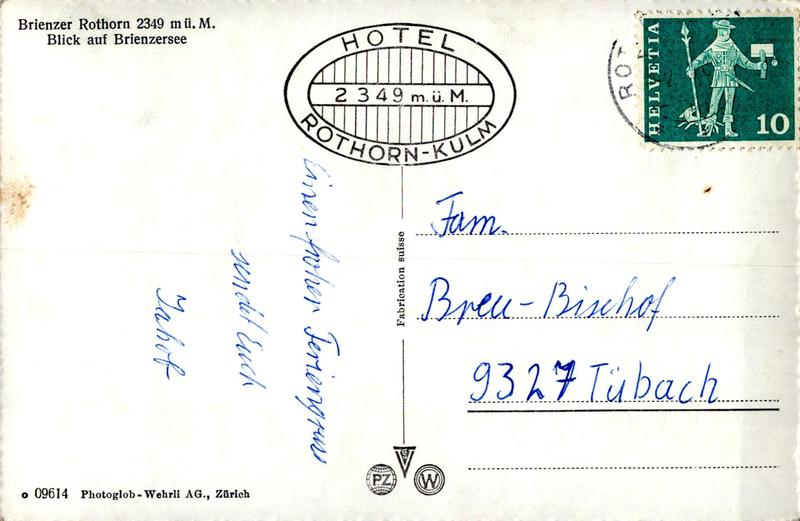 Brienzer Rothorn 2349 m ü. M.
Blick auf Brienzersee
HOTEL
2349 m.ü.M.
ROTHORN-KULM
ROT
HELVETIA
10
Einen frohen Feriengruss
sendet Euch
Fam.
Breu-Bischof
9327 Tübach
Fabrication suisse
PZ
W
09614 Photoglob-Wehrli AG., Zürich